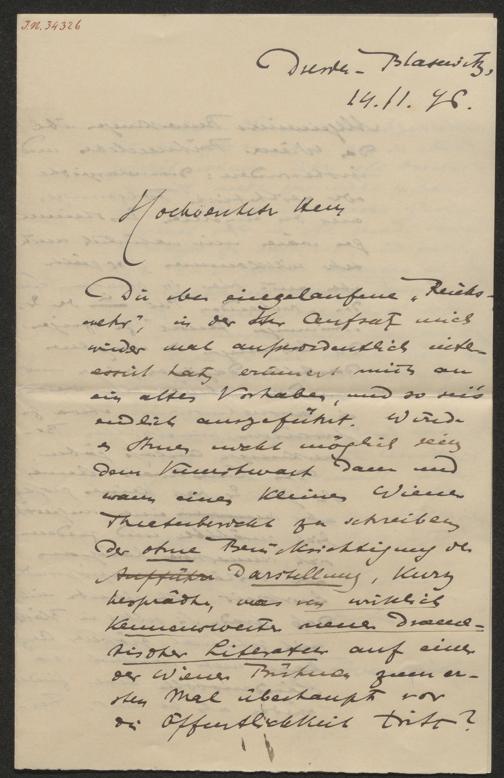 J.N. 34326
Dresden-Blasewitz,
14.11.96.
Hochverehrter Herr,
Die eben eingelaufene „Reichs-
wehr", in der Ihr Aufsatz mich
wieder mal außerordentlich inter-
essirt hat, erinnert mich an
ein altes Vorhaben, und so sei's
endlich ausgeführt. Würde
es Ihnen nicht möglich sein,
dem Kunstwart dann und
wann einen kleinen Wiener
Theaterbericht zu schreiben,
der ohne Berücksichtigung der
Aufführ Darstellung, kurz
bespräche, was an wirklich
kennenswerter neuer Drama-
tischer Literatur auf einer
der Wiener Bühnen zum er-
sten Mal überhaupt vor
die Öffentlichkeit tritt?